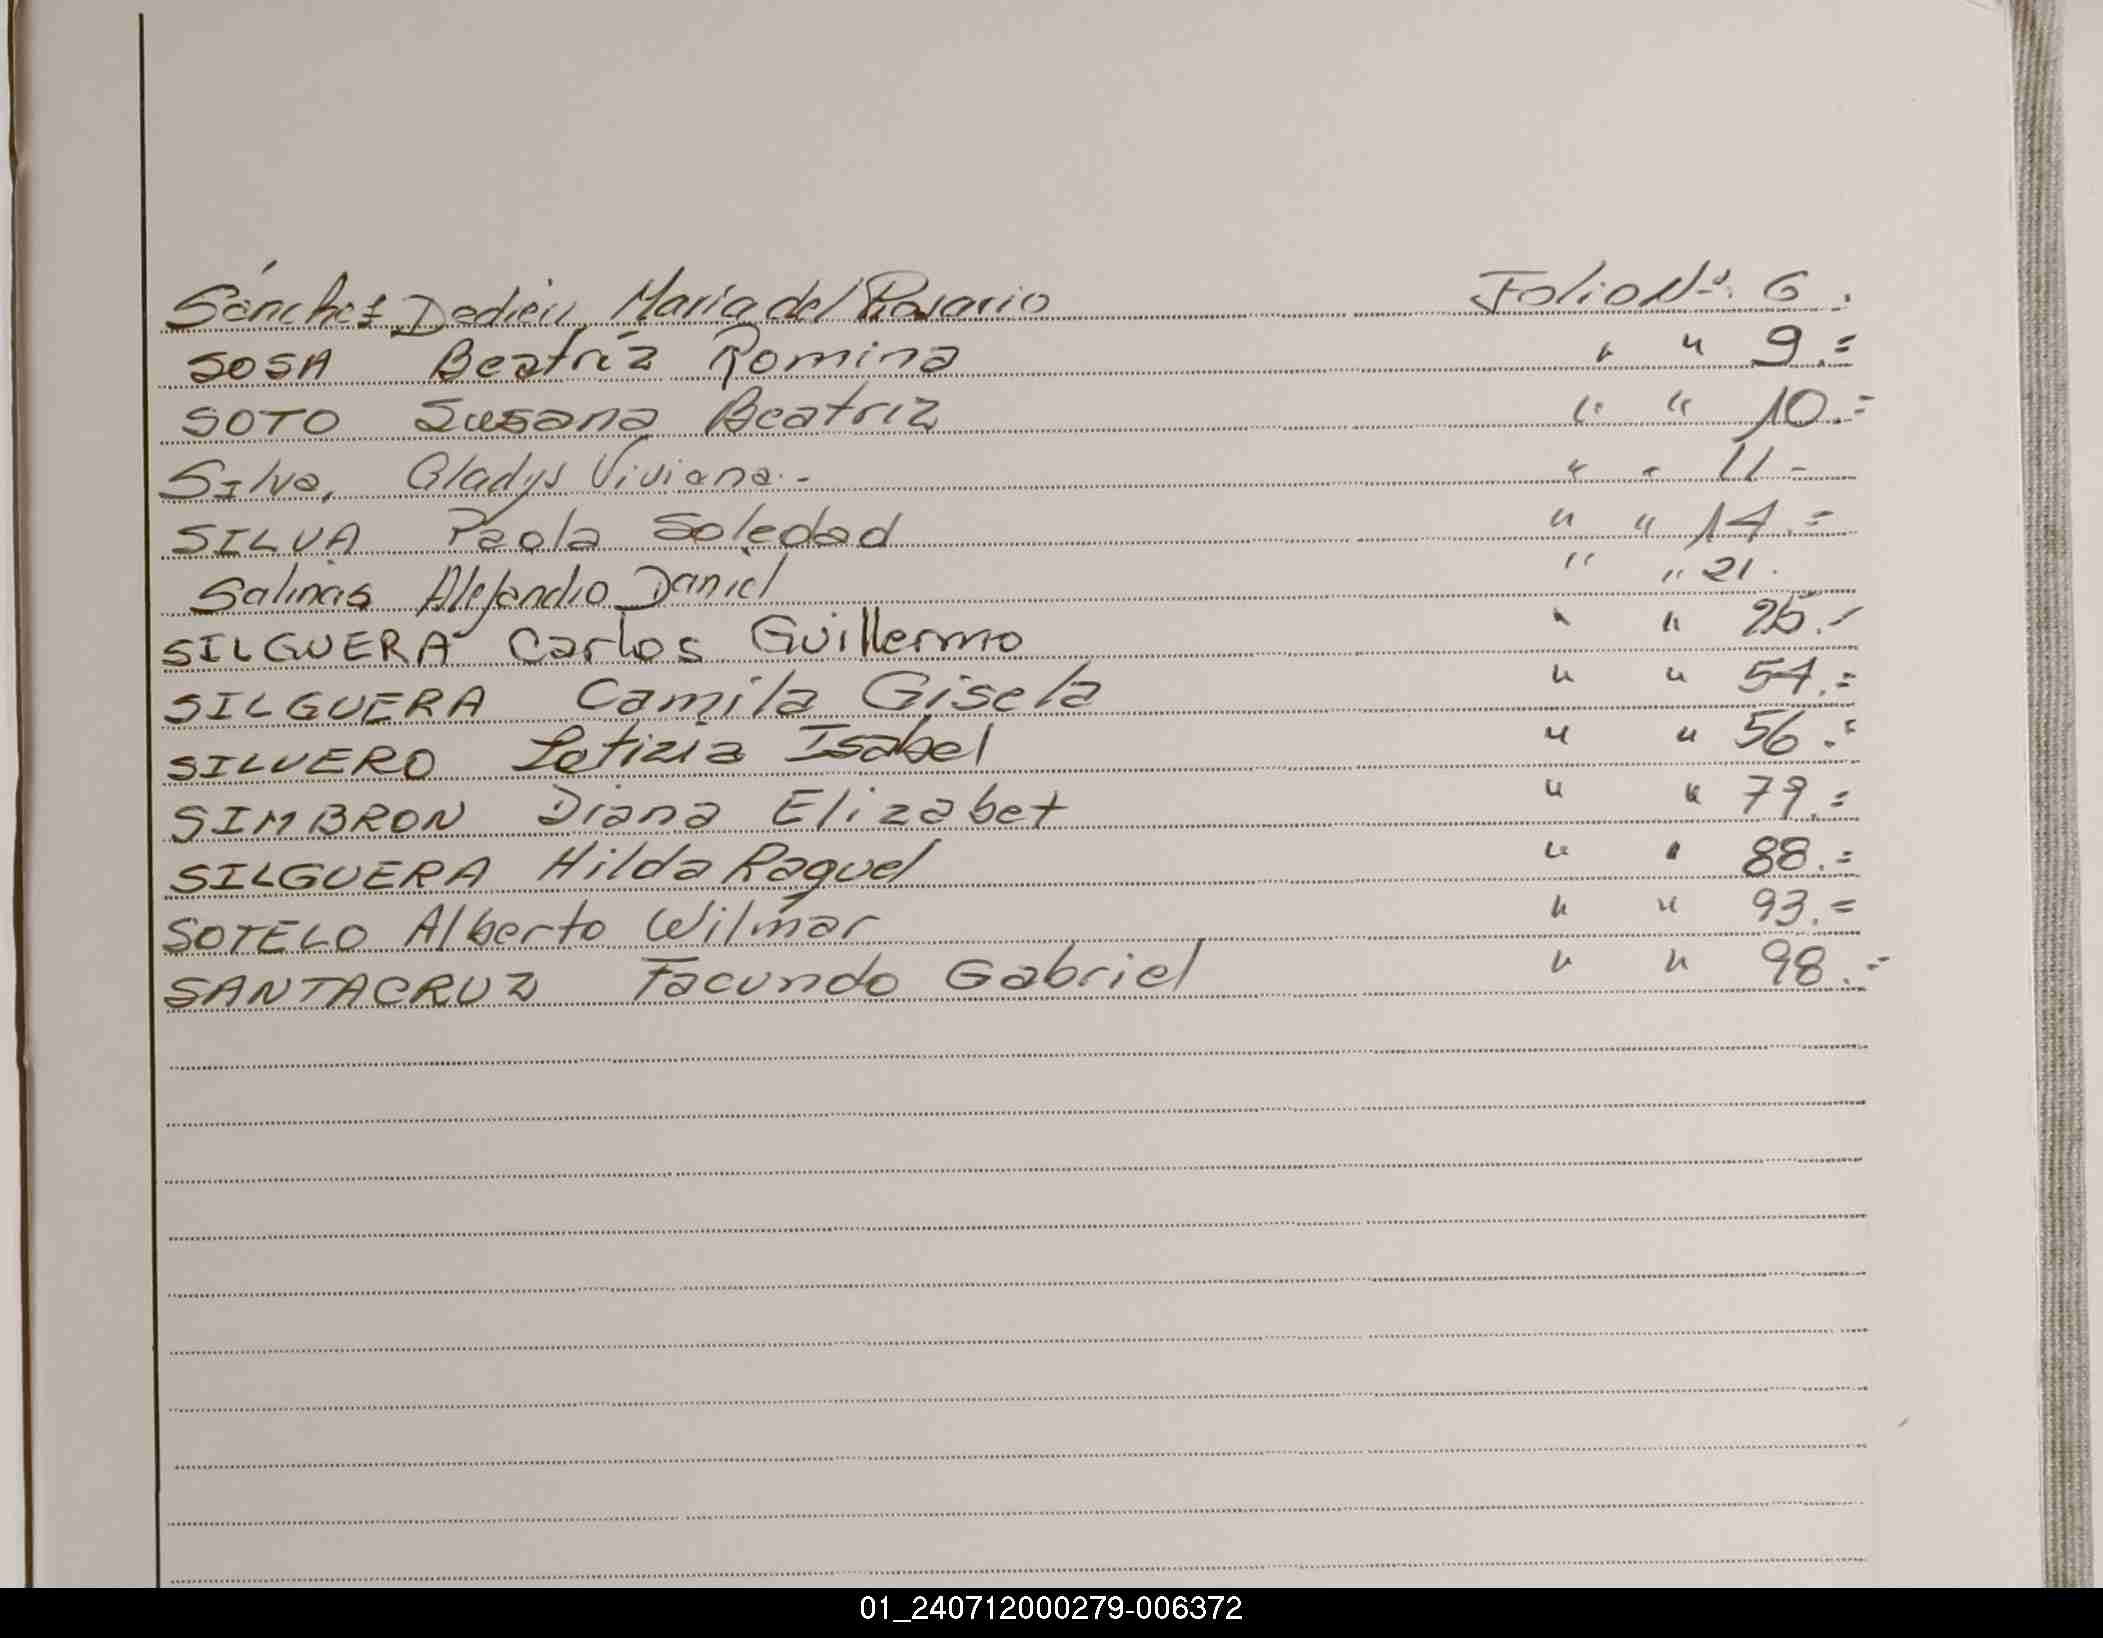 Sánchez Dedieu María del Rosario Folio Nº. 6.
SOSA Beatríz Romina " " 9.=
SOTO Susana Beatriz " " 10.=
Silva, Gladys Viviana.- " " 11-
SILVA Paola Soledad " " 14.=
Salinas Alejandro Daniel " " 21.
SILGUERA Carlos Guillermo " " 25.-
SILGUERA Camila Gisela " " 54.=
SILVERO Letizia Isabel " " 56.=
SIMBRON Diana Elizabet " " 79.=
SILGUERA Hilda Raquel " " 88.=
SOTELO Alberto Wilmar " " 93.=
SANTACRUZ Facundo Gabriel " " 98.=
01_240712000279-006372